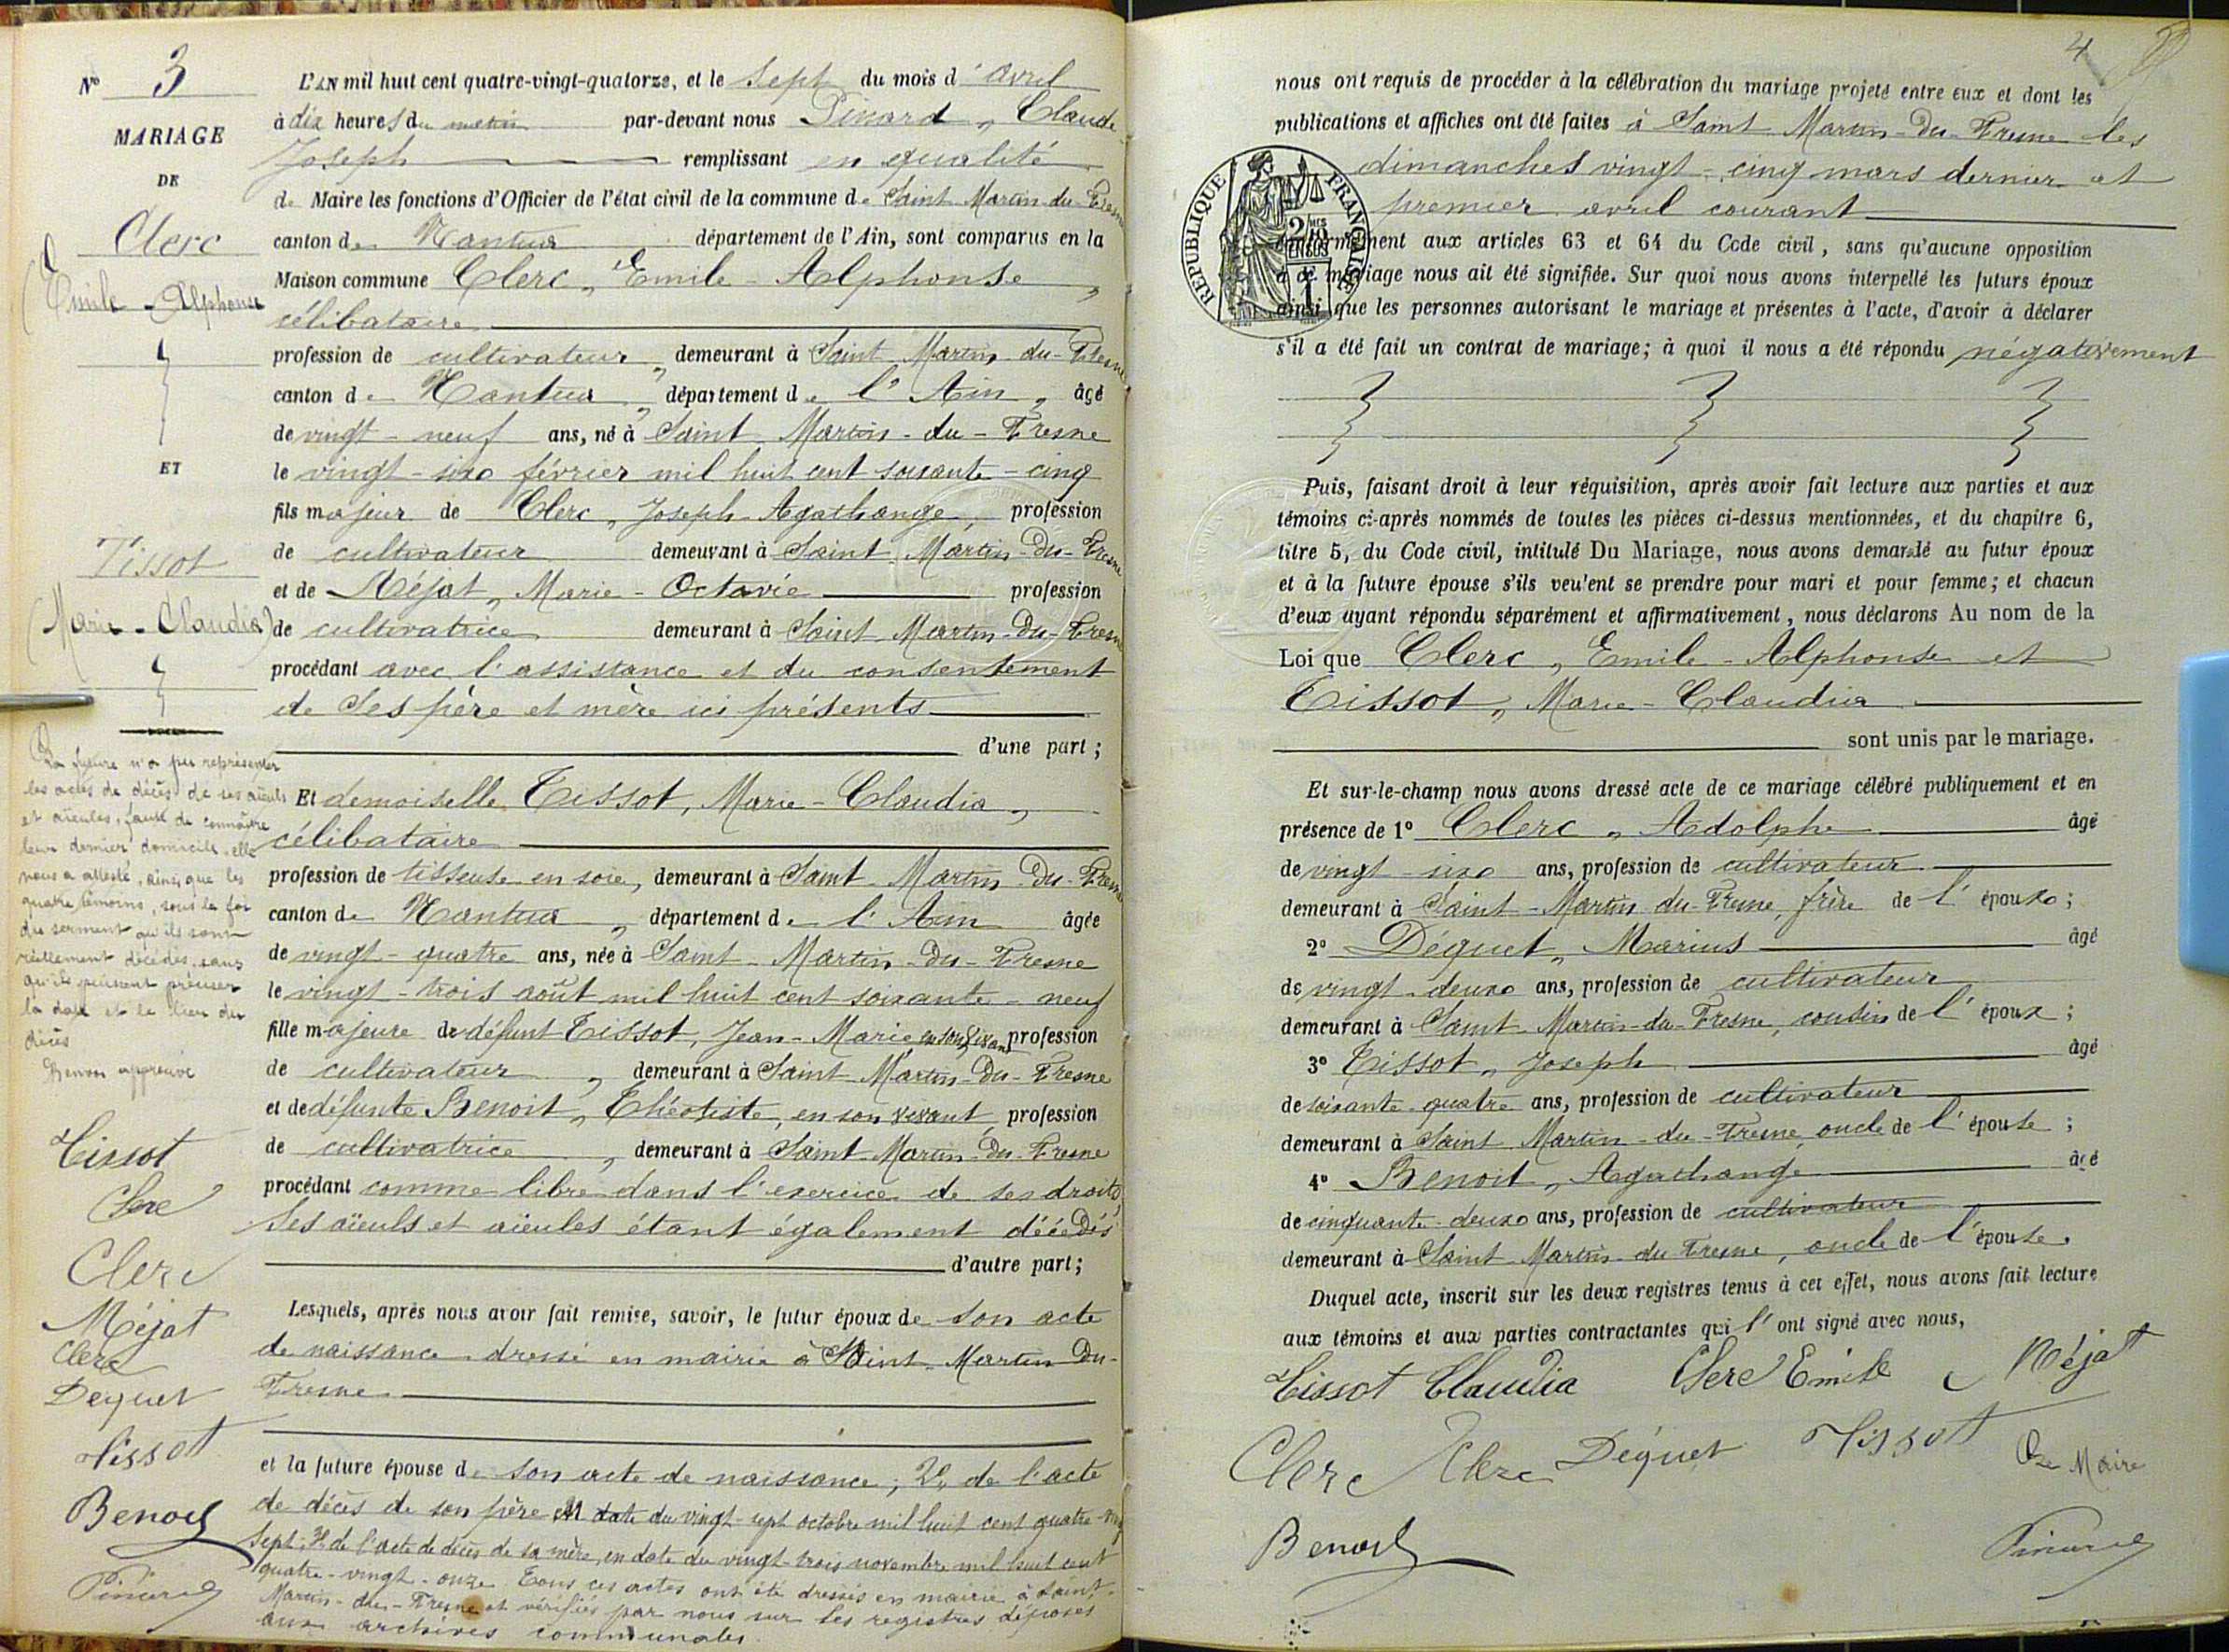 N° 3
MARIAGE
DE
Clerc
(Emile-Alphonse
ET
Tissot
(Marie-Claudia)
La future n'a pu représenter
les actes de décès de ses aïeuls
et aïeules, faute de connaître
leur dernier domicile, elle
nous a attesté, ainsi que les
quatre témoins, sous la foi
du serment qu'ils sont
réellement décédés, sans
qu'ils puissent préciser
la date et le lieu du
décès
Renvoi approuvé
Tissot
Clerc
Clerc
Méjat
Clerc
Déquet
Tissot
Benoit
Pinard
L'AN mil huit cent quatre-vingt-quatorze, et le sept du mois d'avril
à dix heures du matin par-devant nous Pinard, Claude
Joseph remplissant en qualité
de Maire les fonctions d'Officier de l'état civil de la commune de Saint Martin-du-Fresne
canton de Nantua département de l'Ain, sont comparus en la
Maison commune Clerc, Emile-Alphonse,
célibataire
profession de cultivateur, demeurant à Saint Martin-du-Fresne
canton de Nantua, département de l'Ain, âgé
de vingt-neuf ans, né à Saint Martin-du-Fresne
le vingt-six février mil huit cent soixante-cinq
fils majeur de Clerc, Joseph-Agathange, profession
de cultivateur demeurant à Saint Martin-Du-Fresne
et de Méjat, Marie-Octavie profession
de cultivatrice demeurant à Saint Martin-Du-Fresne
procédant avec l'assistance et du consentement
de Ses père et mère ici présents
d'une part;
Et demoiselle Tissot, Marie-Claudia,
célibataire
profession de tisseuse en soie, demeurant à Saint Martin-Du-Fresne
canton de Nantua, département de l'Ain âgée
de vingt-quatre ans, née à Saint-Martin-Du-Fresne
le vingt-trois août mil huit cent soixante-neuf
fille majeure de défunt Tissot, Jean-Marie, en son vivant profession
de cultivateur, demeurant à Saint Martin-Du-Fresne
et de défunte Benoit, Théotiste, en son vivant, profession
de cultivatrice, demeurant à Saint Martin-Du-Fresne
procédant comme libre dans l'exercice de ses droits
Ses aïeuls et aïeules étant également décédés
d'autre part;
Lesquels, après nous avoir fait remise, savoir, le futur époux de son acte
de naissance dressé en mairie à Saint-Martin Du-
Fresne
et la future épouse de son acte de naissance; 2° de l'acte
de décès de son père en date du vingt-sept octobre mil huit cent quatre-vingt
sept; 3° de l'acte de décès de sa mère, en date du vingt-trois novembre mil huit cent
quatre-vingt-onze. Tous ces actes ont été dressés en mairie à Saint-
Martin-du-Fresne et vérifiés par nous sur les registres déposés
aux archives communales.
4
nous ont requis de procéder à la célébration du mariage projeté entre eux et dont les
publications et affiches ont été faites à Saint Martin-Du-Fresne les
dimanches vingt-cinq mars dernier et
premier avril courant
RÉPUBLIQUE FRANÇAISE
conformément aux articles 63 et 64 du Code civil, sans qu'aucune opposition
à ce mariage nous ait été signifiée. Sur quoi nous avons interpellé les futurs époux
ainsi que les personnes autorisant le mariage et présentes à l'acte, d'avoir à déclarer
s'il a été fait un contrat de mariage; à quoi il nous a été répondu négativement
Puis, faisant droit à leur réquisition, après avoir fait lecture aux parties et aux
témoins ci-après nommés de toutes les pièces ci-dessus mentionnées, et du chapitre 6,
titre 5, du Code civil, intitulé Du Mariage, nous avons demandé au futur époux
et à la future épouse s'ils veulent se prendre pour mari et pour femme; et chacun
d'eux ayant répondu séparément et affirmativement, nous déclarons Au nom de la
Loi que Clerc, Emile-Alphonse et
Tissot, Marie-Claudia
sont unis par le mariage.
Et sur-le-champ nous avons dressé acte de ce mariage célébré publiquement et en
présence de 1° Clerc, Adolphe âgé
de vingt-six ans, profession de cultivateur
demeurant à Saint-Martin du-Fresne, frère de l'époux;
2° Déquet, Marius âgé
de vingt-deux ans, profession de cultivateur
demeurant à Saint-Martin-du-Fresne, cousin de l'époux;
3° Tissot, Joseph âgé
de soixante-quatre ans, profession de cultivateur
demeurant à Saint Martin-du-Fresne, oncle de l'épouse;
4° Benoit, Agathange âgé
de cinquante-deux ans, profession de cultivateur
demeurant à Saint Martin-du Fresne, oncle de l'épouse.
Duquel acte, inscrit sur les deux registres tenus à cet effet, nous avons fait lecture
aux témoins et aux parties contractantes qui l'ont signé avec nous,
Tissot Claudia Clerc Emile Méjat
Clerc Clerc Déquet Tissot Le Maire
Benoit Pinard